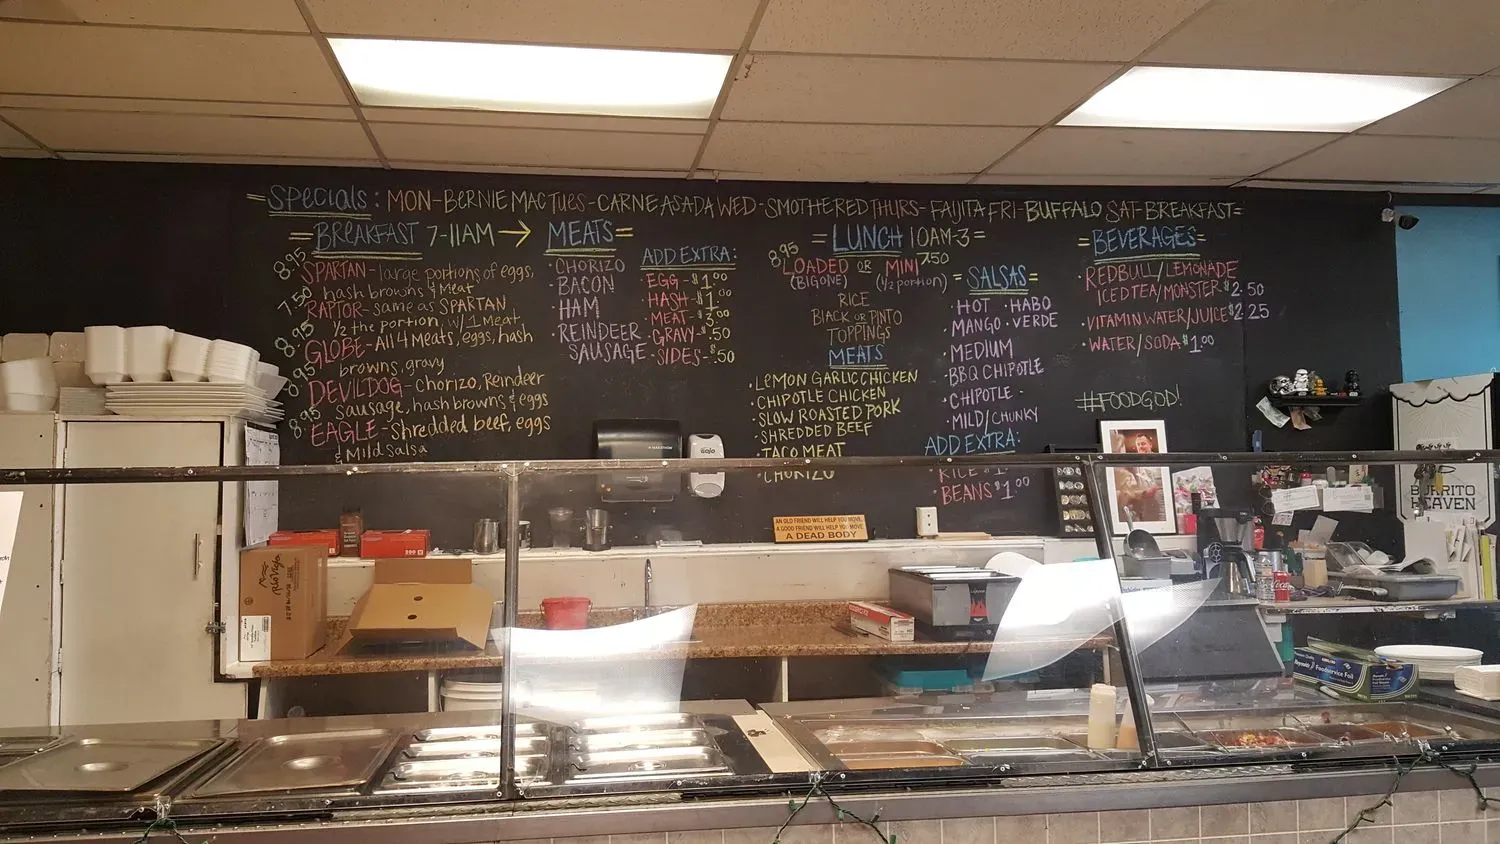 =Specials: MON-BERNIE MAC TUES-CARNE ASADA WED-SMOTHERED THURS-FAIJITA FRI-BUFFALO SAT-BREAKFAST=
=BREAKFAST 7-11AM→
8.95 SPARTAN-large portions of eggs,
hash browns & Meat
7.50 RAPTOR-same as SPARTAN
1/2 the portion, w/ 1 Meat
8.95 GLOBE-All 4 Meats, eggs, hash
browns, gravy
8.95 DEVILDOG-chorizo, Reindeer
sausage, hash browns & eggs
8.95 EAGLE-Shredded beef, eggs
& Mild Salsa
MEATS=
·CHORIZO
·BACON
·HAM
·REINDEER
SAUSAGE
ADD EXTRA:
·EGG-$1.00
·HASH-$1.00
·MEAT-$3.00
·GRAVY-$.50
·SIDES-$.50
=LUNCH 10AM-3=
8.95 LOADED OR MINI 7.50
(BIG ONE) (1/2 portion)
RICE
BLACK OR PINTO
TOPPINGS
MEATS
·LEMON GARLIC CHICKEN
·CHIPOTLE CHICKEN
·SLOW ROASTED PORK
·SHREDDED BEEF
·TACO MEAT
·CHORIZO
=SALSAS=
·HOT ·HABO
·MANGO ·VERDE
·MEDIUM
·BBQ CHIPOTLE
·CHIPOTLE
·MILD/CHUNKY
ADD EXTRA:
·RICE
·BEANS $1.00
=BEVERAGES=
·REDBULL/LEMONADE
ICED TEA/MONSTER $2.50
·VITAMIN WATER/JUICE $2.25
·WATER/SODA $1.00
#FOODGOD!
AN OLD FRIEND WILL HELP YOU MOVE.
A GOOD FRIEND WILL HELP YOU MOVE
A DEAD BODY
BURRITO
HEAVEN
Foodservice Foil